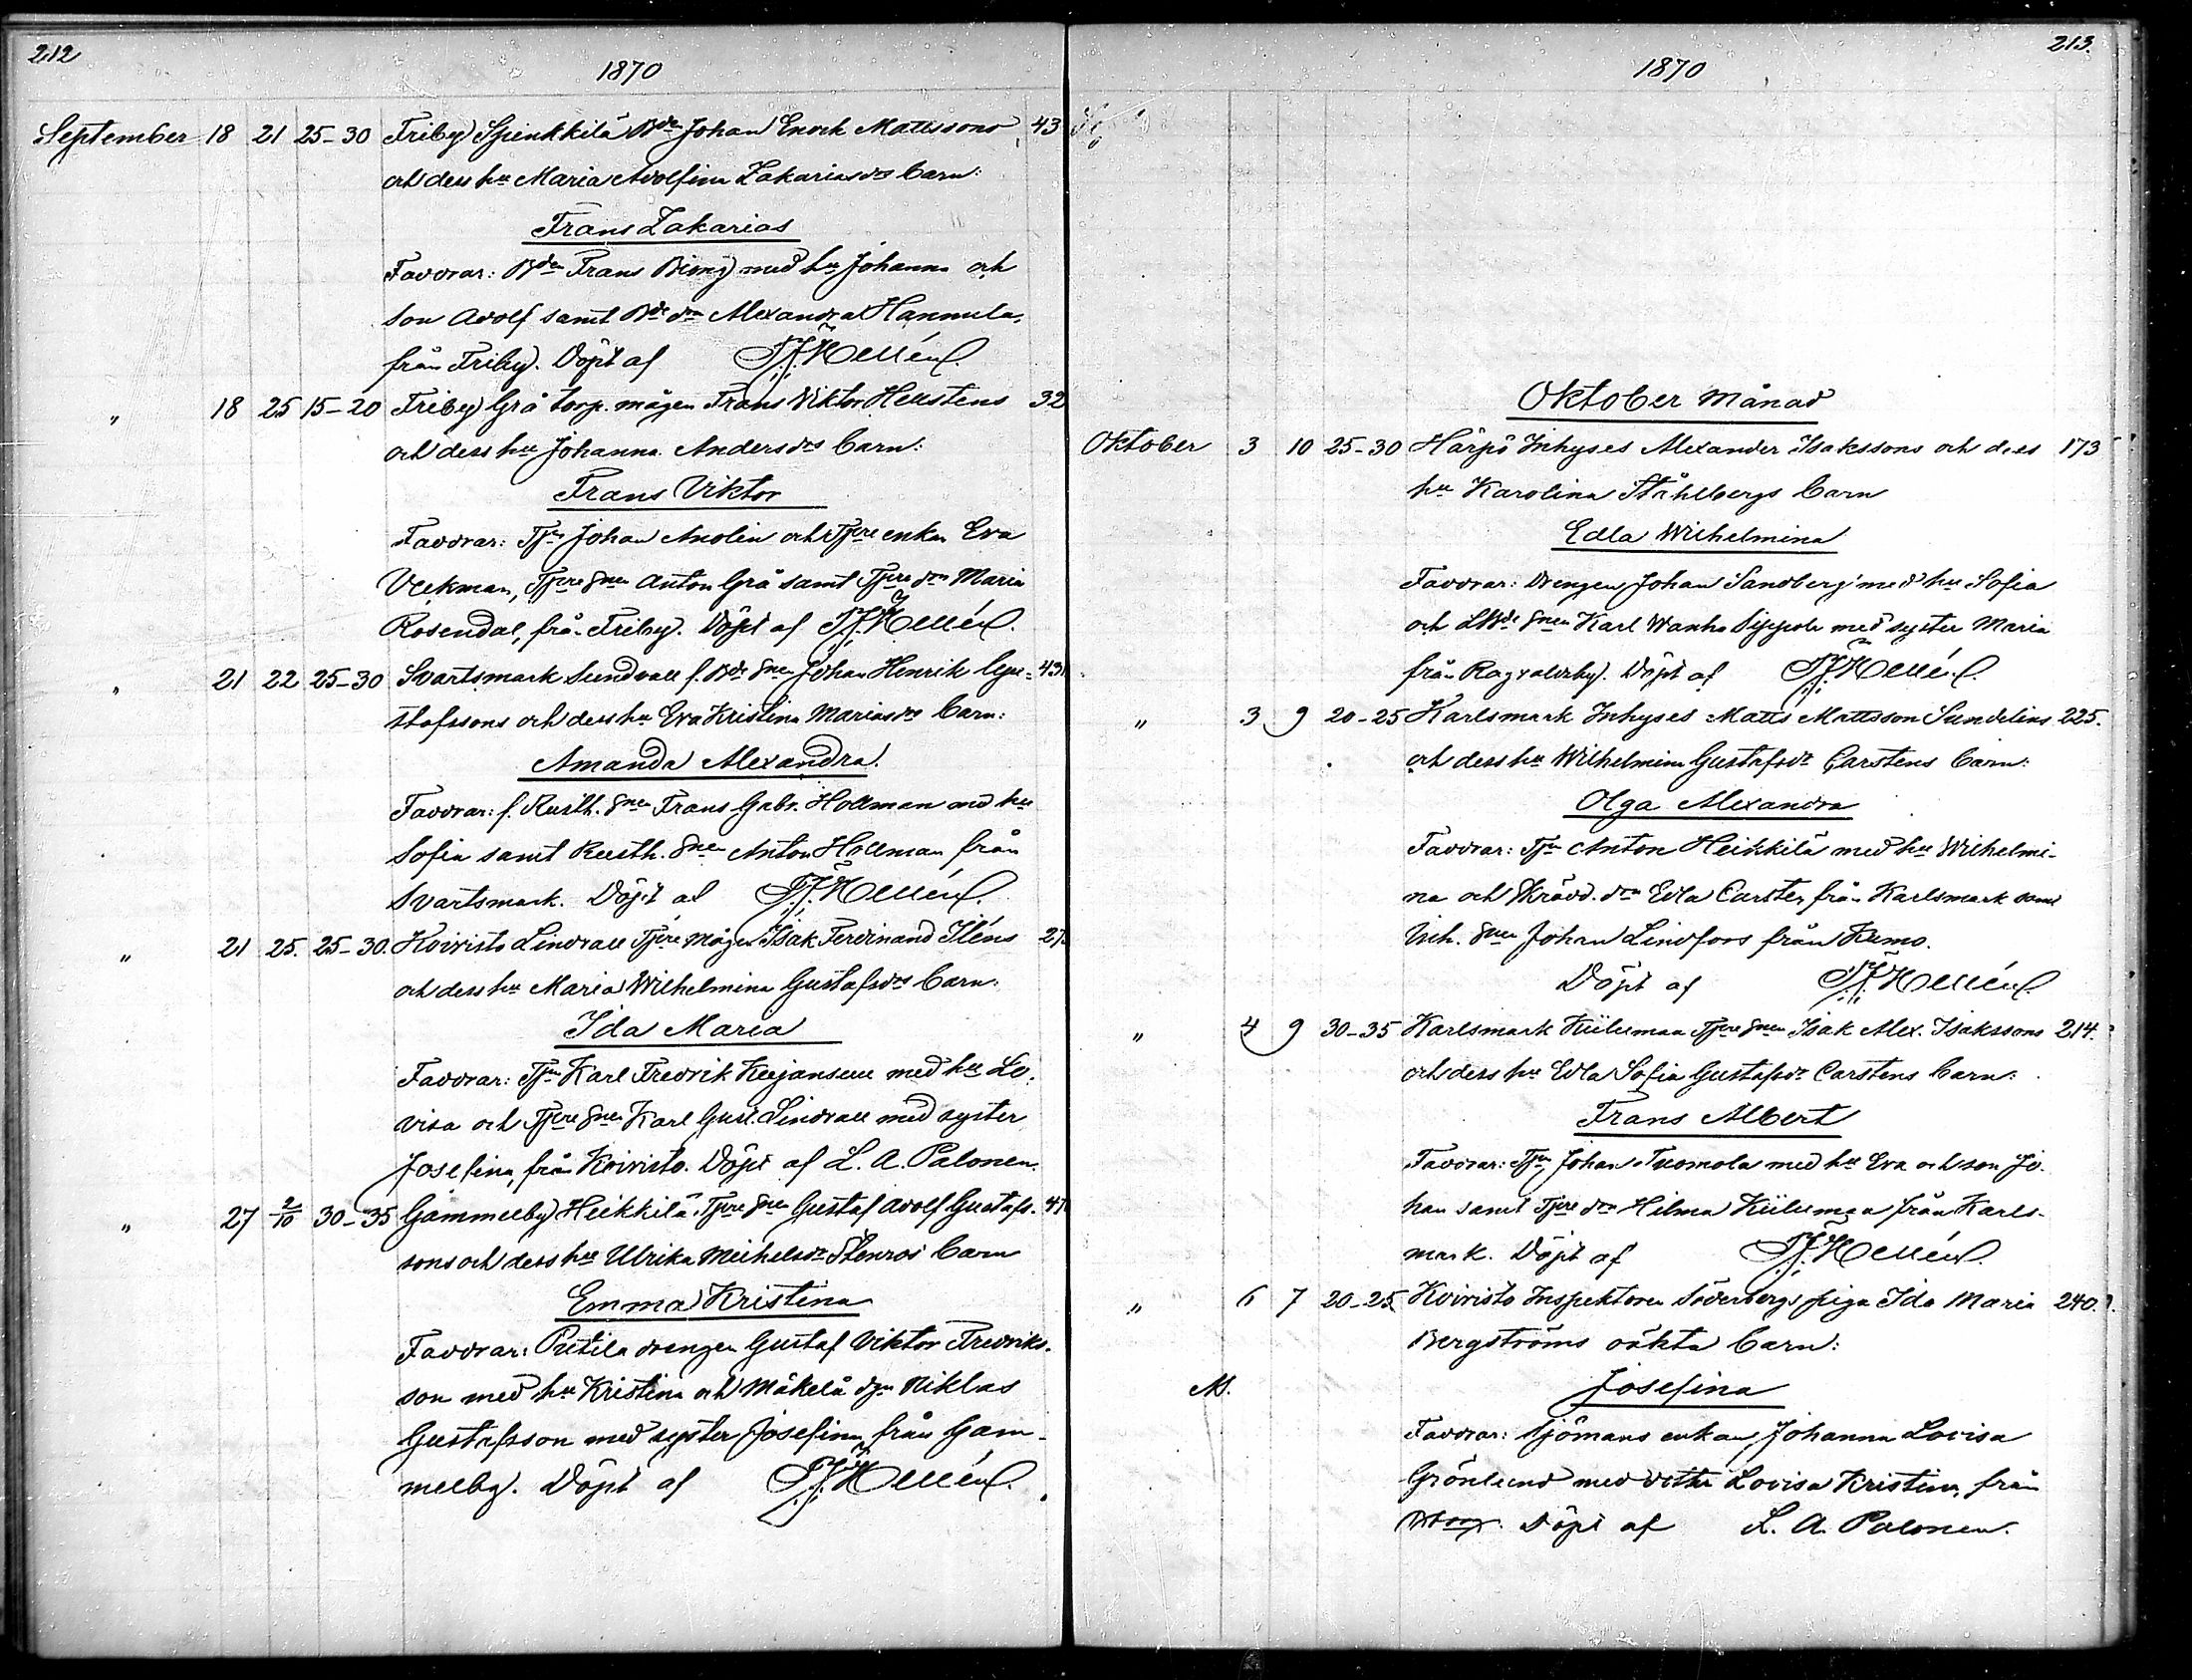 212
1870
September 18 21 25-30 Friby Bden Johan Enoch Mattssons 43
och dess hu Maria Adolfina Zakariasdrs barn:
Frans Zakarias
Faddrar: Bden Frans med hu Johanna och
son Adolf samt Bde drn Alexandra Hannula,
från Friby. Döpt af Hellén.
" 18 25 15-20 Friby Grå torp. mågen Frans Viktor Hellstens 32
och dess hu Johanna Andersdrs barn:
Frans Viktor
Faddrar: Tjn Johan Anolin och Tjre enkan Eva
Veckman, Tjre Snen Anton Grå samt Tjre drn Maria
Rosendal, från Friby. Döpt af Hellén.
" 21 22 25-30 Svartsmark Sundvall f. Bde Snen Johan Henrik Gus= 43
tafssons och dess hu Eva Kristina Mariasdrs barn:
Amanda Alexandra.
Faddrar: f. Rusth. Snen Frans Gabr. Hollman med hu
Sofia samt Rusth. Snen Anton Hollman från
Svartsmark. Döpt af Hellén.
" 21 25. 25-30. Koivisto Lindvall Tjre Mågen Isak Ferdinand Iléns 27.
och dess hu Maria Wilhelmina Gustafsdrs barn:
Ida Maria
Faddrar: Tjn Karl Fredrik med hu Lo-
visa och Tjre Snen Karl Gust. Lindvall med syster
Josefina, från Koivisto. Döpt af L. A. Palonen.
" 27 2/10 30-35 Gammelby Heikkilä Tjre Snen Gustaf Adolf Gustafs- 47
sons och dess hu Ulrika Michelsdr Stenros barn
Emma Kristina
Faddrar: Prétila drengen Gustaf Viktor Fredriks-
son med hu Kristina och Mäkelä dgn Niklas
Gustafsson med syster Josefina, från Gam-
melby. Döpt af Hellén.
213.
1870
Oktober Månad
Oktober 3 10 25-30 Härpö Inhyses Alexander Isakssons och dess 173
hu Karolina Ståhlbergs barn
Edla Wilhelmina
Faddrar: Drengen Johan Sandberg med hu Sofia
och Snen Karl Wanha Sippola med syster Maria
från Ragvaldsby. Döpt af Hellén.
" 3 9 20-25 Karlsmark Inhyses Matts Mattsson Sundelins 225.
och dess hu Wilhelmina Gustafsdr Carstens barn:
Olga Alexandra
Faddrar: Tjn Anton Heikkilä med hu Wilhelmi-
na och Skrädd. drn Edla Carsten från Karlsmark samt
Inh. Snen Johan Lindfors från Kumo.
Döpt af Hellén.
" 4 9 30-35 Karlsmark Tjre Snen Isak Alex. Isakssons 214.
och dess hu Edla Sofia Gustafsdr Carstens barn:
Frans Albert
Faddrar: Tjn Johan Tuomola med hu Eva och son Jo-
han samt Tjre drn Hilma från Karls-
mark. Döpt af Hellén.
" 6 7 20-25. Koivisto Inspektoren Söderbergs piga Ida Maria 240.
Bergströms oäkta barn:
Josefina
Faddrar: Sjömans enkan Johanna Lovisa
Grönlund med dotter Lovisa Kristina, från
Döpt af L. A. Palonen.